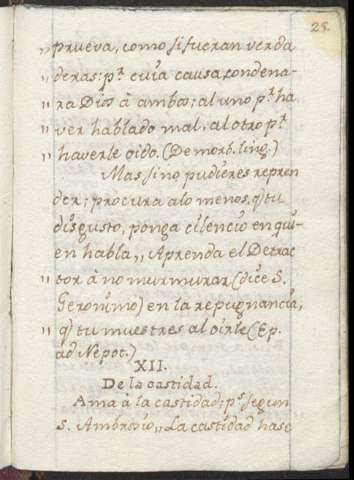 25.
„ prueva, como si fueran verda
„ deras: p.ʳ cuia causa, condena-
„ ra Dios à ambos; al uno p.ʳ ha
„ ver hablado mal, al otro p.ʳ
„ haverle oido. (De morb. ling.)
Mas sino pudieres repren
der; procura alo menos, q̃ tu
disgusto, ponga cilencio en qui-
en habla „ Aprenda el Detrac
tor à no murmurar (dice S.
Geronimo) en la repugnancia,
„ q̃ tu muestres al oirle (Ep.
ad Nepot.)
XII.
De la castidad.
Ama à la castidad; p.ˢ segun
S. Ambrosio „ La castidad hase